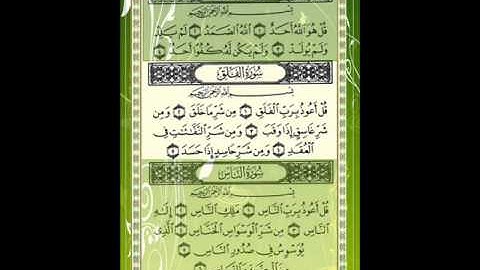 بِسْمِ اللَّهِ الرَّحْمَٰنِ الرَّحِيمِ
قُلْ هُوَ اللَّهُ أَحَدٌ ۝١ اللَّهُ الصَّمَدُ ۝٢ لَمْ يَلِدْ
وَلَمْ يُولَدْ ۝٣ وَلَمْ يَكُن لَّهُ كُفُوًا أَحَدٌ ۝٤
سُورَةُ الْفَلَقِ
بِسْمِ اللَّهِ الرَّحْمَٰنِ الرَّحِيمِ
قُلْ أَعُوذُ بِرَبِّ الْفَلَقِ ۝١ مِن شَرِّ مَا خَلَقَ ۝٢ وَمِن
شَرِّ غَاسِقٍ إِذَا وَقَبَ ۝٣ وَمِن شَرِّ النَّفَّاثَاتِ فِي
الْعُقَدِ ۝٤ وَمِن شَرِّ حَاسِدٍ إِذَا حَسَدَ ۝٥
سُورَةُ النَّاسِ
بِسْمِ اللَّهِ الرَّحْمَٰنِ الرَّحِيمِ
قُلْ أَعُوذُ بِرَبِّ النَّاسِ ۝١ مَلِكِ النَّاسِ ۝٢ إِلَٰهِ
النَّاسِ ۝٣ مِن شَرِّ الْوَسْوَاسِ الْخَنَّاسِ ۝٤ الَّذِي
يُوَسْوِسُ فِي صُدُورِ النَّاسِ ۝٥